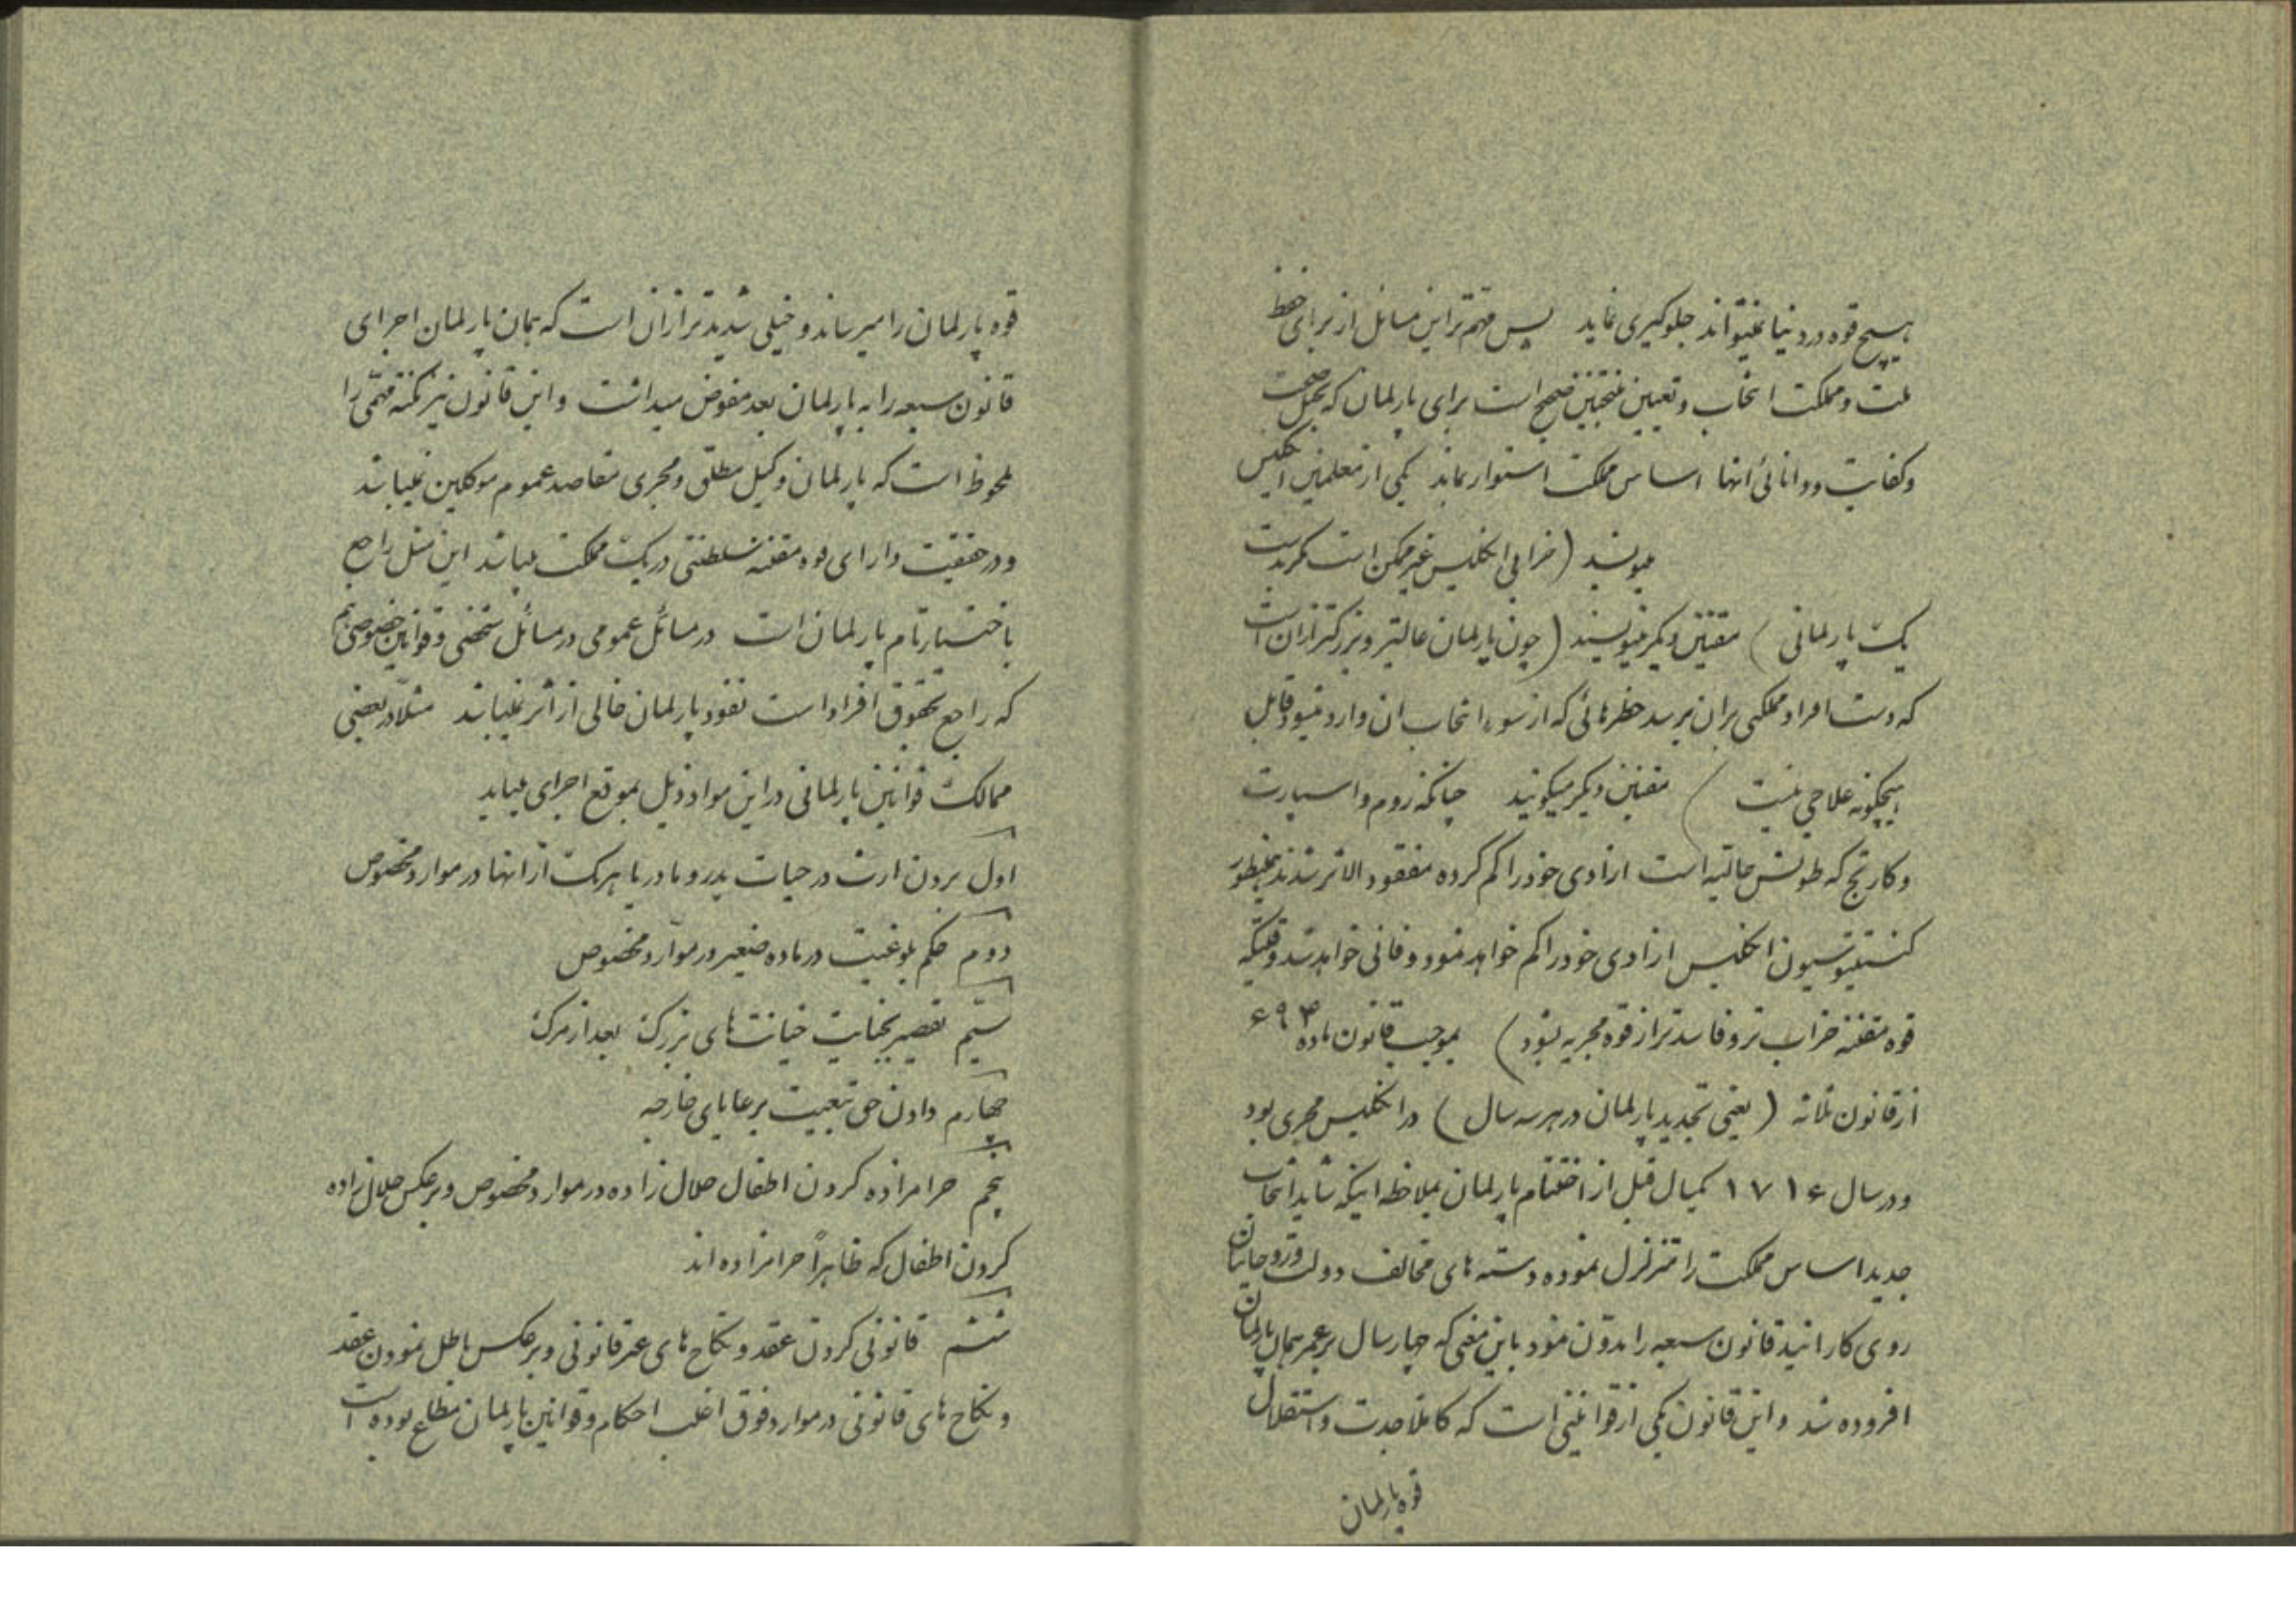 هیچ قوه در دنیا نمیتواند جلوگیری نماید پس مهم‌تر این مسائل از برای حفظ
ملت و مملکت انتخاب و تعیین منتخبین صحیح است برای پارلمان که بعمل صحت
و کفایت و دانائی انها اساس مملکت استوار بماند یکی از معلمین انگلیس
میونسید (خرابی انگلیس غیر ممکن است مگر بدست
یک پارلمانی) مقنین دیگر مینویسند (چون پارلمان عالیتر و بزرگتر از ان است
که دست افراد مملکتی بران برسد خطرهائی که از سوء انتخاب ان وارد میشود قابل
هیچگونه علاجی نیست) مقنین دیگر میگویند چنانکه روم و اسپارت
و کارتج که طولش حالتیه است ازادی خود را گم کرده مفقود الاثر شدند همینطور
کنستیتوسیون انگلیس ازادی خود را گم خواهد نمود و فانی خواهد شد وقتیکه
قوه مقننه خراب تر و فاسد تر از قوه مجریه بشود) بموجب قانون ماده ۶۹۳
از قانون ثلاثه (یعنی تجدید پارلمان در هر سه سال) در انگلیس مجری بود
و در سال ۱۷۱۶ یکسال قبل از اختتام پارلمان بملاحظه اینکه شاید انتخاب
جدید اساس مملکت را متزلزل نموده دسته های مخالف دولت و روحانیان
روی کار ایند قانون سبعه را مدون نمود باین معنی که چهار سال بر عمر همان پارلمان
افزوده شد و این قانون یکی از قوانینی است که کاملا جدت و استقلال
قوه پارلمان
قوه پارلمان را میرساند و خیلی شدیدتر از ان است که همان پارلمان اجرای
قانون سبعه را به پارلمان بعد مفوض میداشت و این قانون نیز نکته مهمی را
ملحوظ است که پارلمان وکیل مطلق و مجری مقاصد عموم موکلین نمیباشد
و در حقیقت دارای قوه مقننه سلطنتی در یک مملکت میباشد این مثل راجع
باختیار تام پارلمان است در مسائل عمومی در مسائل شخصی و قوانین خصوصی هم
که راجع بحقوق افراد است نفوذ پارلمان خالی از اثر نمیباشد مثلا در بعضی
ممالک قوانین پارلمانی در این مواد ذیل بموقع اجرای میاید
اول بردن ارث در حیات پدر و مادر یا هر یک از انها در موارد مخصوص
دوم حکم بلوغیت در ماده صغیر در موارد مخصوص
سیم تقصیر بجنایت خیانت‌های بزرگ بعد از مرگ
چهارم دادن حق تبعیت برعایای خارجه
پنجم حرامزاده کردن اطفال حلال زاده در موارد مخصوص و برعکس حلال زاده
کردن اطفال که ظاهراً حرامزاده اند
ششم قانونی کردن عقد و نکاح های غیر قانونی و برعکس باطل نمودن عقد
و نکاح های قانونی در موارد فوق اغلب احکام و قوانین پارلمان مطاع بوده است